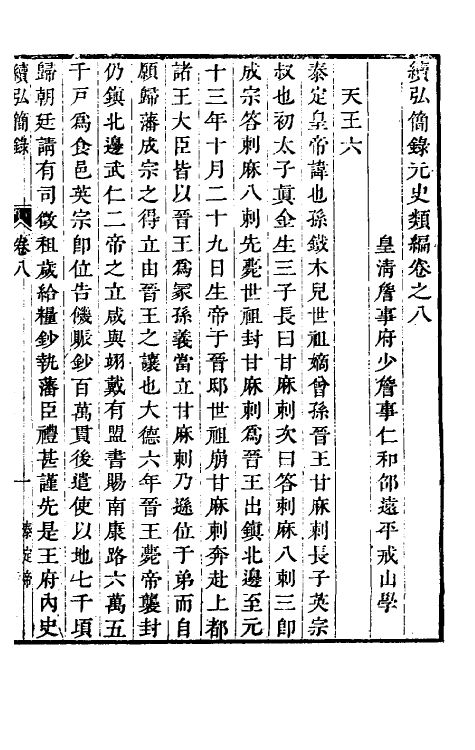 續弘簡錄元史類編卷之八
皇清詹事府少詹事仁和邵遠平戒山學
天王六
泰定皇帝諱也孫鐵木兒世祖嫡曾孫晉王甘麻剌長子英宗
叔也初太子眞金生三子長曰甘麻剌次曰答剌麻八剌三卽
成宗答剌麻八剌先薨世祖封甘麻剌爲晉王出鎮北邊至元
十三年十月二十九日生帝于晉邸世祖崩甘麻剌奔赴上都
諸王大臣皆以晉王爲冢孫義當立甘麻剌乃遜位于弟而自
願歸藩成宗之得立由晉王之讓也大德六年晉王薨帝襲封
仍鎮北邊武仁二帝之立咸與翊戴有盟書賜南康路六萬五
千戸爲食邑英宗卽位告饑賑鈔百萬貫後遣使以地七千頃
歸朝廷請有司徵租歲給糧鈔執藩臣禮甚謹先是王府內史
續弘簡錄
卷八
一
泰定帝